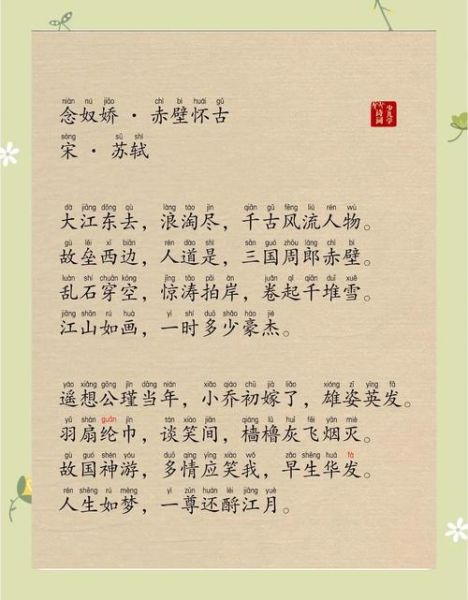 niàn nú jiāo chì bì huái gǔ
念奴娇·赤壁怀古
少儿学
诗词
sòng sū shì
宋·苏轼
dà jiāng dōng qù làng táo jìn qiān gǔ fēng liú rén wù
大江东去，浪淘尽，千古风流人物。
gù lěi xī biān rén dào shì sān guó zhōu láng chì bì
故垒西边，人道是，三国周郎赤壁。
luàn shí chuān kōng jīng tāo pāi àn juǎn qǐ qiān duī xuě
乱石穿空，惊涛拍岸，卷起千堆雪。
jiāng shān rú huà yì shí duō shǎo háo jié
江山如画，一时多少豪杰。
yáo xiǎng gōng jǐn dāng nián xiǎo qiáo chū jià liǎo xióng zī yīng fā
遥想公瑾当年，小乔初嫁了，雄姿英发。
yǔ shàn guān jīn tán xiào jiān qiáng lǔ huī fēi yān miè
羽扇纶巾，谈笑间，樯橹灰飞烟灭。
gù guó shén yóu duō qíng yīng xiào wǒ zǎo shēng huá fà
故国神游，多情应笑我，早生华发。
rén shēng rú mèng yì zūn huán lèi jiāng yuè
人生如梦，一尊还酹江月。